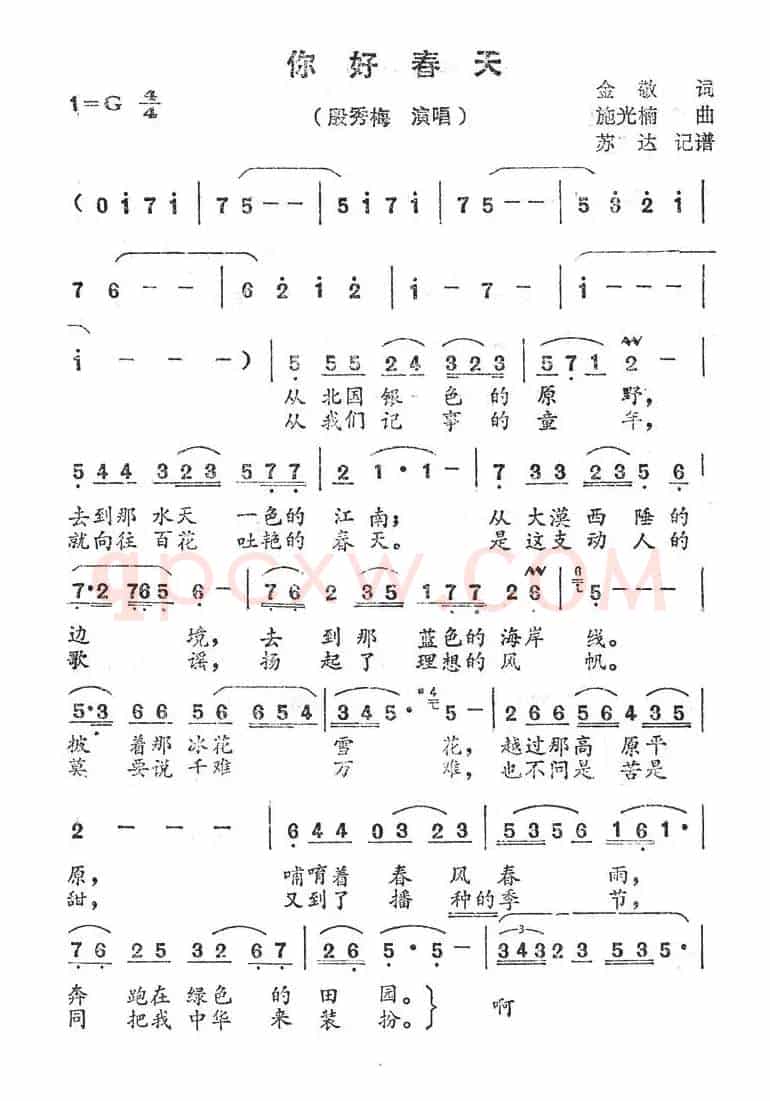 你好春天
1=G 4/4
（殷秀梅 演唱）
金敬 词
施光楠 曲
苏达 记谱
（0 i 7 i | 7 5 - - | 5 i 7 i | 7 5 - - | 5 3 2 i |
7 6 - - | 6 2 i 2 | i - 7 - | i - - - |
i - - - ） | 5 55 24 323 | 571 2 - |
从北国银色的原野，
从我们记事的童年，
544 323 577 | 2 1·1 - | 7 33 235 6 |
去到那水天一色的江南；从大漠西陲的
就向往百花吐艳的春天。是这支动人的
7·2 765 6 - | 76 2 35 177 26 | 5 - - |
边境，去到那蓝色的海岸线。
歌谣，扬起了理想的风帆。
qpcxw.com
5·3 66 56 654 | 345· 5 - | 266 564 35 |
披着那冰花雪花，越过那高原平
莫要说千难万难，也不问是苦是
2 - - - | 644 03 23 | 5356 161· |
原，哺育着春风春雨，
甜，又到了播种的季节，
76 25 32 67 | 26 5·5 - | 3432 3 535· |
奔跑在绿色的田园。啊
同把我中华来装扮。